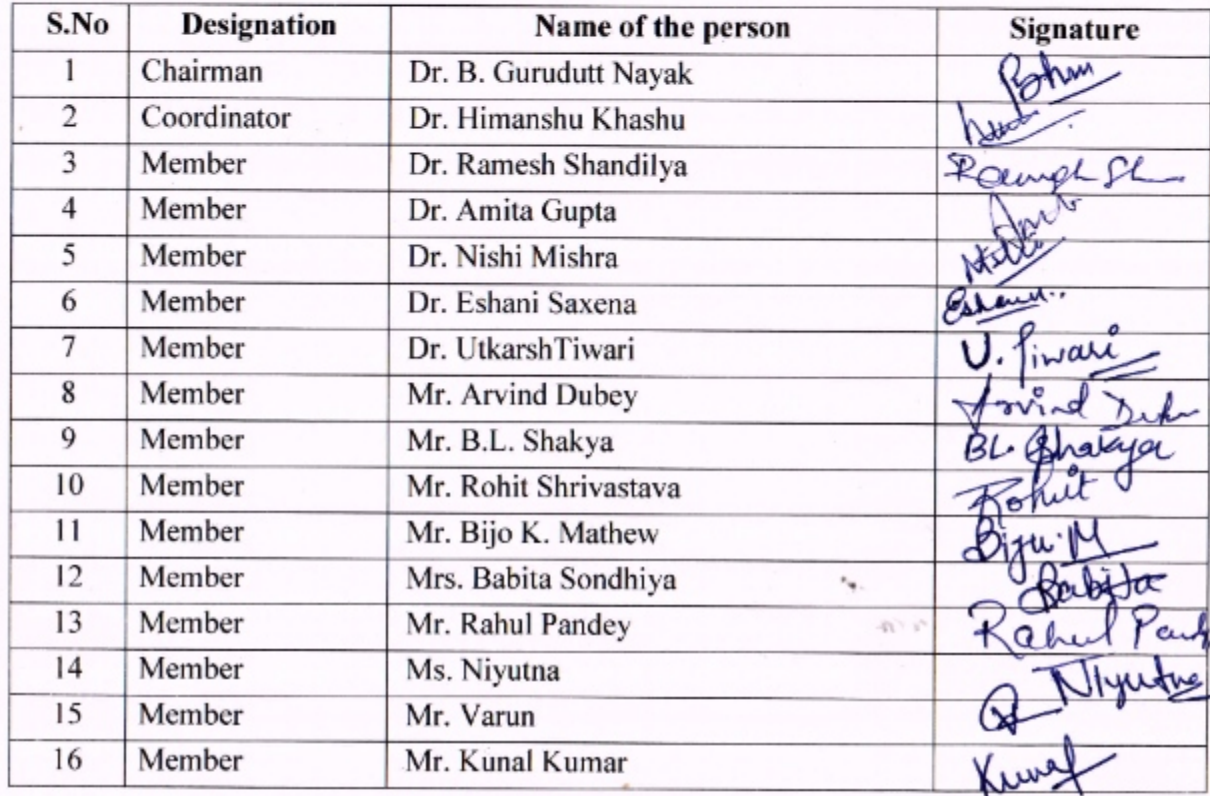 S.No Designation Name of the person Signature
1 Chairman Dr. B. Gurudutt Nayak
2 Coordinator Dr. Himanshu Khashu
3 Member Dr. Ramesh Shandilya
4 Member Dr. Amita Gupta
5 Member Dr. Nishi Mishra
6 Member Dr. Eshani Saxena
7 Member Dr. UtkarshTiwari U. Tiwari
8 Member Mr. Arvind Dubey Arvind
9 Member Mr. B.L. Shakya BL. Shakya
10 Member Mr. Rohit Shrivastava Rohit
11 Member Mr. Bijo K. Mathew Biju.M
12 Member Mrs. Babita Sondhiya Babita
13 Member Mr. Rahul Pandey Rahul
14 Member Ms. Niyutna Niyutna
15 Member Mr. Varun
16 Member Mr. Kunal Kumar Kunal